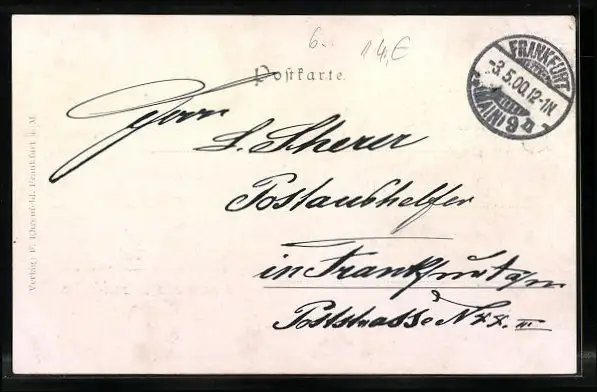 6.
14,€
Postkarte.
FRANKFURT
-3.5.00.12-1N.
(MAIN) 9
Herrn
L. Scherer
Postaushelfer
in Frankfurt a/m
Poststrasse N
III
Verlag: F. Ehrenfeld, Frankfurt a. M.